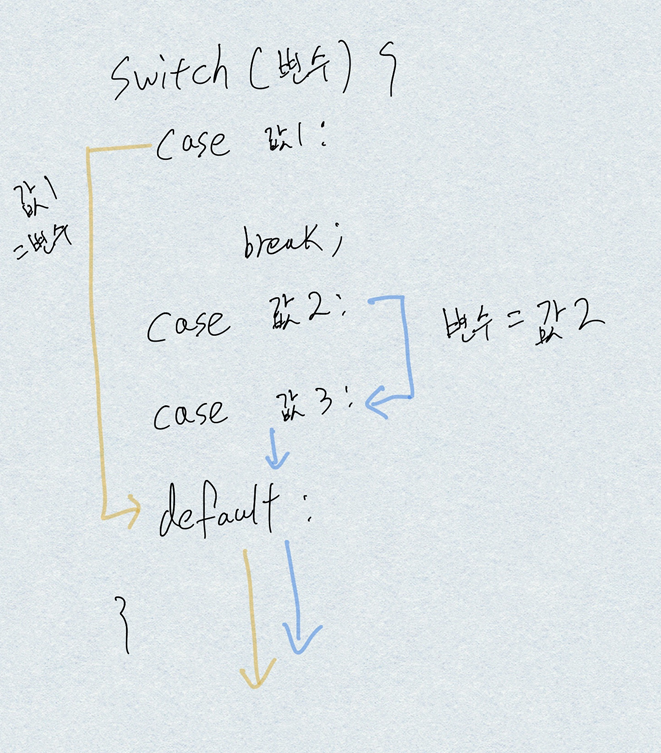 switch (변수) {
case 값1:
값1
=변수
break;
case 값2:
변수 = 값2
case 값3:
default:
}